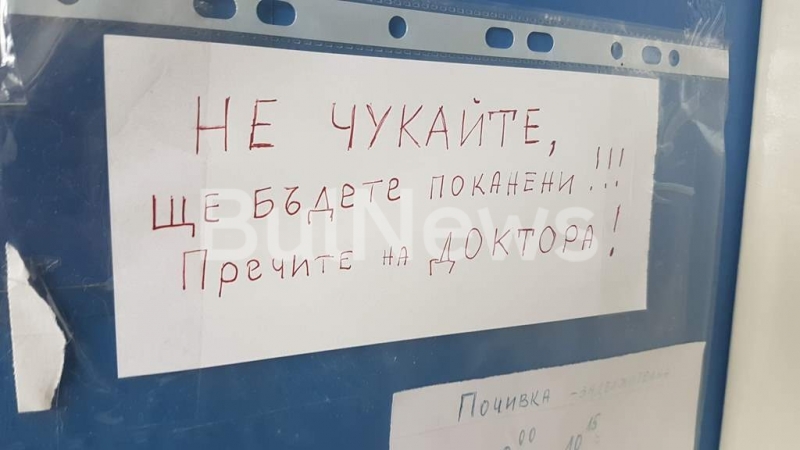 НЕ ЧУКАЙТЕ,
ЩЕ БЪДЕТЕ ПОКАНЕНИ!!!
Пречите на ДОКТОРА!
BulNews
Почивка
00 10 15